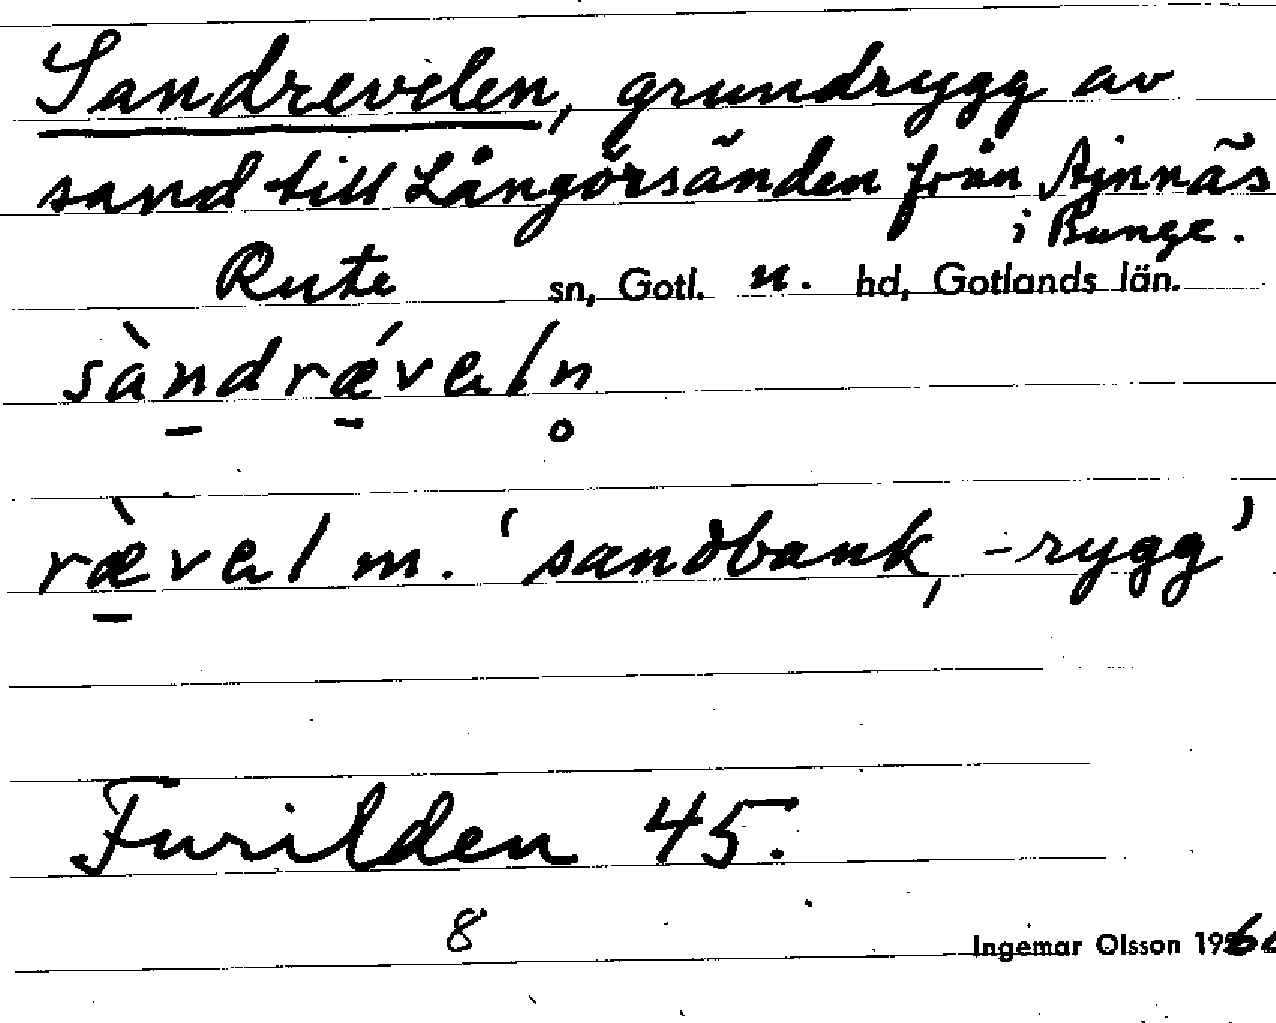 Sandrevelen, grundrygg av
sand till Långörsänden från Ajnnäs
i Bunge.
Rute sn, Gotl. n. hd, Gotlands län.
sàn̠drǽ̠vəln̥
ræ̠̀vəl m. 'sandbank, -rygg'
Furilden 45.
8
Ingemar Olsson